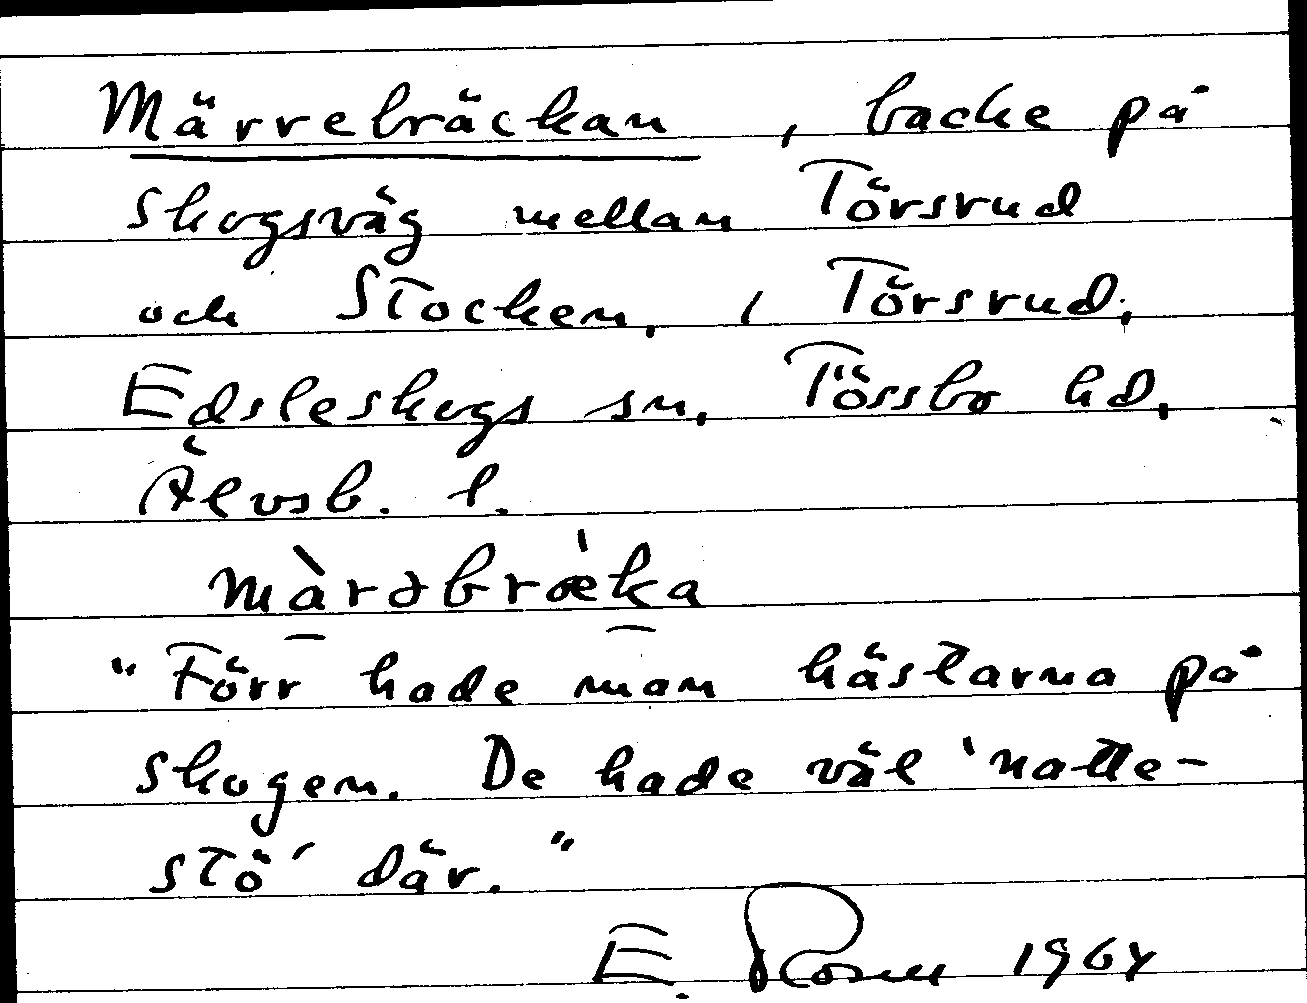 Märrebräckan, backe på
skogsväg mellan Törsrud
och Stocken, i Törsrud,
Edsleskogs sn, Tössbo hd,
Älvsb. l.
màrəbræ̀ka
"Förr hade man hästarna på
skogen. De hade väl 'natte-
stö' där."
E. Rosell 1964